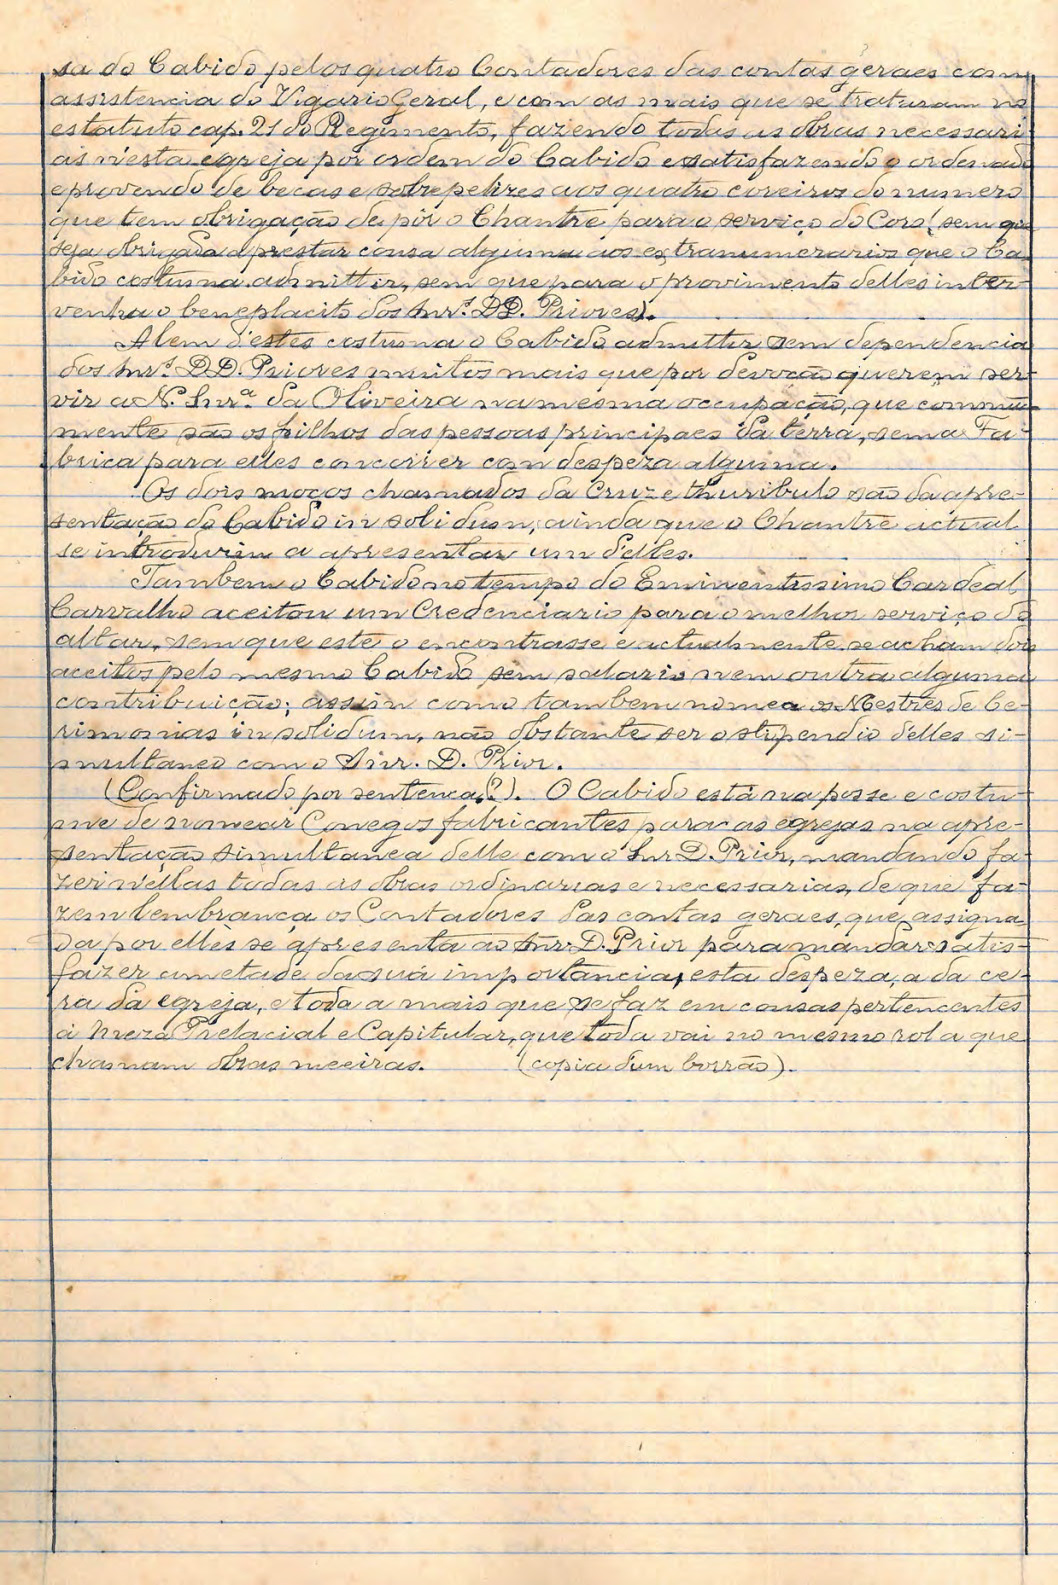 sa do Cabido pelos quatro Contadores das contas geraes com
assistencia do Vigario Geral, e com as mais que se trataram no
estatuto cap. 21 do Regimento, fazendo todas as obras necessari-
as n'esta egreja por ordem do Cabido e satisfazendo o ordenado
e provendo de becas e sobrepelizes aos quatro coreiros do numero
que tem obrigação de pôr o Chantre para o serviço do Coro (sem que
seja obrigada a prestar cousa alguma aos extranumerarios que o Ca-
bido costuma admittir, sem que para o provimento delles inter-
venha o beneplacito dos Snr.s DD. Priores).
Alem d'estes costuma o Cabido admittir sem dependencia
dos Snr.s DD. Priores muitos mais que por devoção querem ser-
vir a N. Snr.a da Oliveira na mesma occupação, que commu-
mente são os filhos das pessoas principaes da terra, sem a Fa-
brica para elles concorrer com despeza alguma.
Os dois moços chamados da Cruz e thuribulo são da apre-
sentação do Cabido in solidum, ainda que o Chantre actual
se introduziu a apresentar um delles.
Tambem o Cabido no tempo do Eminentissimo Cardeal
Carvalho aceitou um Credenciario para o melhor serviço do
altar, sem que este o encontrasse e actualmente se acham dois
aceitos pelo mesmo Cabido sem salario nem outra alguma
contribuição; assim como tambem nomea os Mestres de Ce-
rimonias in solidum, não obstante ser o stipendio delles si-
multaneo com o Snr. D. Prior.
(Confirmado por sentença (?). O Cabido está na posse e costu-
me de nomear Conegos fabricantes para as egrejas na apre-
sentação simultanea delle com o Snr D. Prior, mandando fa-
zer n'ellas todas as obras ordinarias e necessarias, de que fa-
zem lembrança os Contadores das contas geraes, que assigna-
da por elles se apresenta ao Snr. D. Prior para mandar satis-
fazer ametade da sua importancia, esta despeza, a da ce-
ra da egreja, e toda a mais que se faz em cousas pertencentes
á Meza Prelacial e Capitular, que toda vai no mesmo rol a que
chamam obras meeiras. (copia dum borrão).